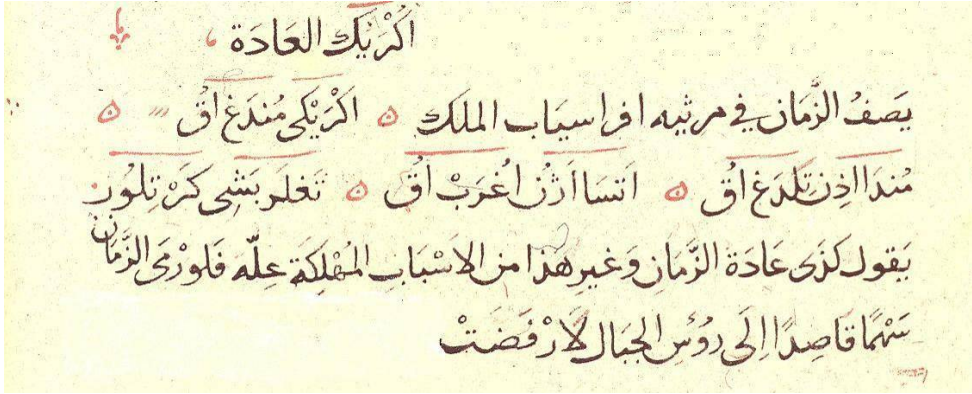 اُكْرَيُك العَادَة
يَصَفُ الزَّمَان في مرثيه افراسيَاب الملك ٥ اكْرَيْكى مُنْدَغ اقُ ٥
مُندَا اذِن تَكدَغ اقُ ٥ اتسَا اَژُن اُغرَبْ اقُ ٥ تَغلَر بَشِى كَرَتِلُور
يَقول كذى عَادَة الزَّمَانِ وَغيرِ هَذا من الاَسْبَابِ المُهْلِكَةِ عِلّه فَلورْمَى الزَّمَان
سَهْمًا قَاصِدًا اِلَى رُؤسِ الجبَال لَارْفَضَتْ